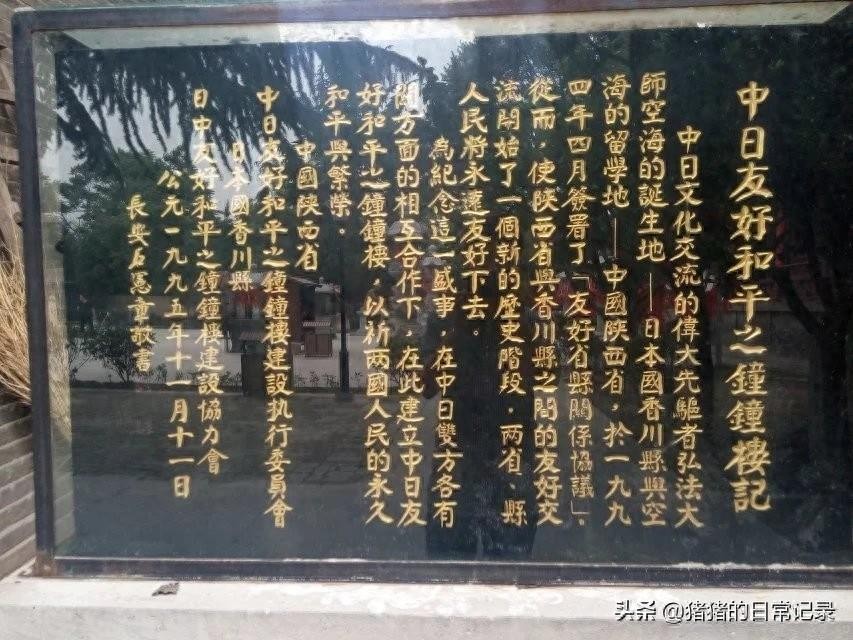 中日友好和平之鐘鐘樓記
中日文化交流的偉大先驅者弘法大
師空海的誕生地——日本國香川縣與空
海的留學地——中國陝西省，於一九九
四年四月簽署了「友好省縣關係協議」。
從而，使陝西省與香川縣之間的友好交
流開始了一個新的歷史階段，兩省、縣
人民將永遠友好下去。
為紀念這一盛事，在中日雙方各有
關方面的相互合作下，在此建立中日友
好和平之鐘鐘樓，以祈兩國人民的永久
和平與繁榮。
中國陝西省
中日友好和平之鐘鐘樓建設执行委員會
日本國香川縣
日中友好和平之鐘鐘樓建設協力會
公元一九九五年十一月十一日
長安 憲童敬書
头条 @猪猪的日常记录